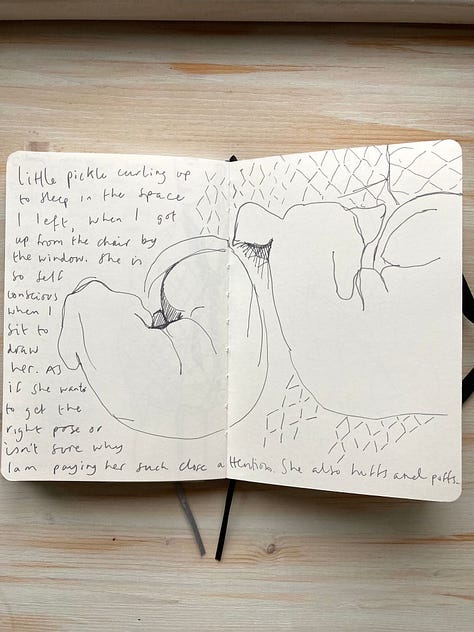 Little pickle curling up
to sleep in the space
I left, when I got
up from the chair by
the window. She is
so self
conscious
when I
sit to
draw
her. As
if she wants
to get the
right pose or
isn't sure why
I am paying her such close attention. She also huffs and puffs.